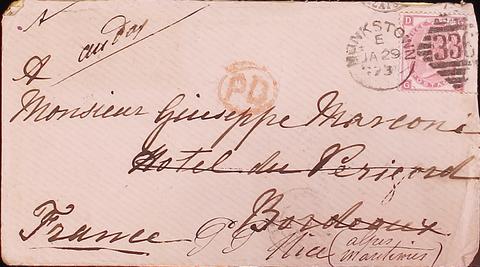 A
MONKSTOWN
E
JA 29
73
336
D
PD
A
Monsieur Giuseppe Marconi
Hotel du Perigord
Bordeaux
France
Nice (alpes
Maritimes)